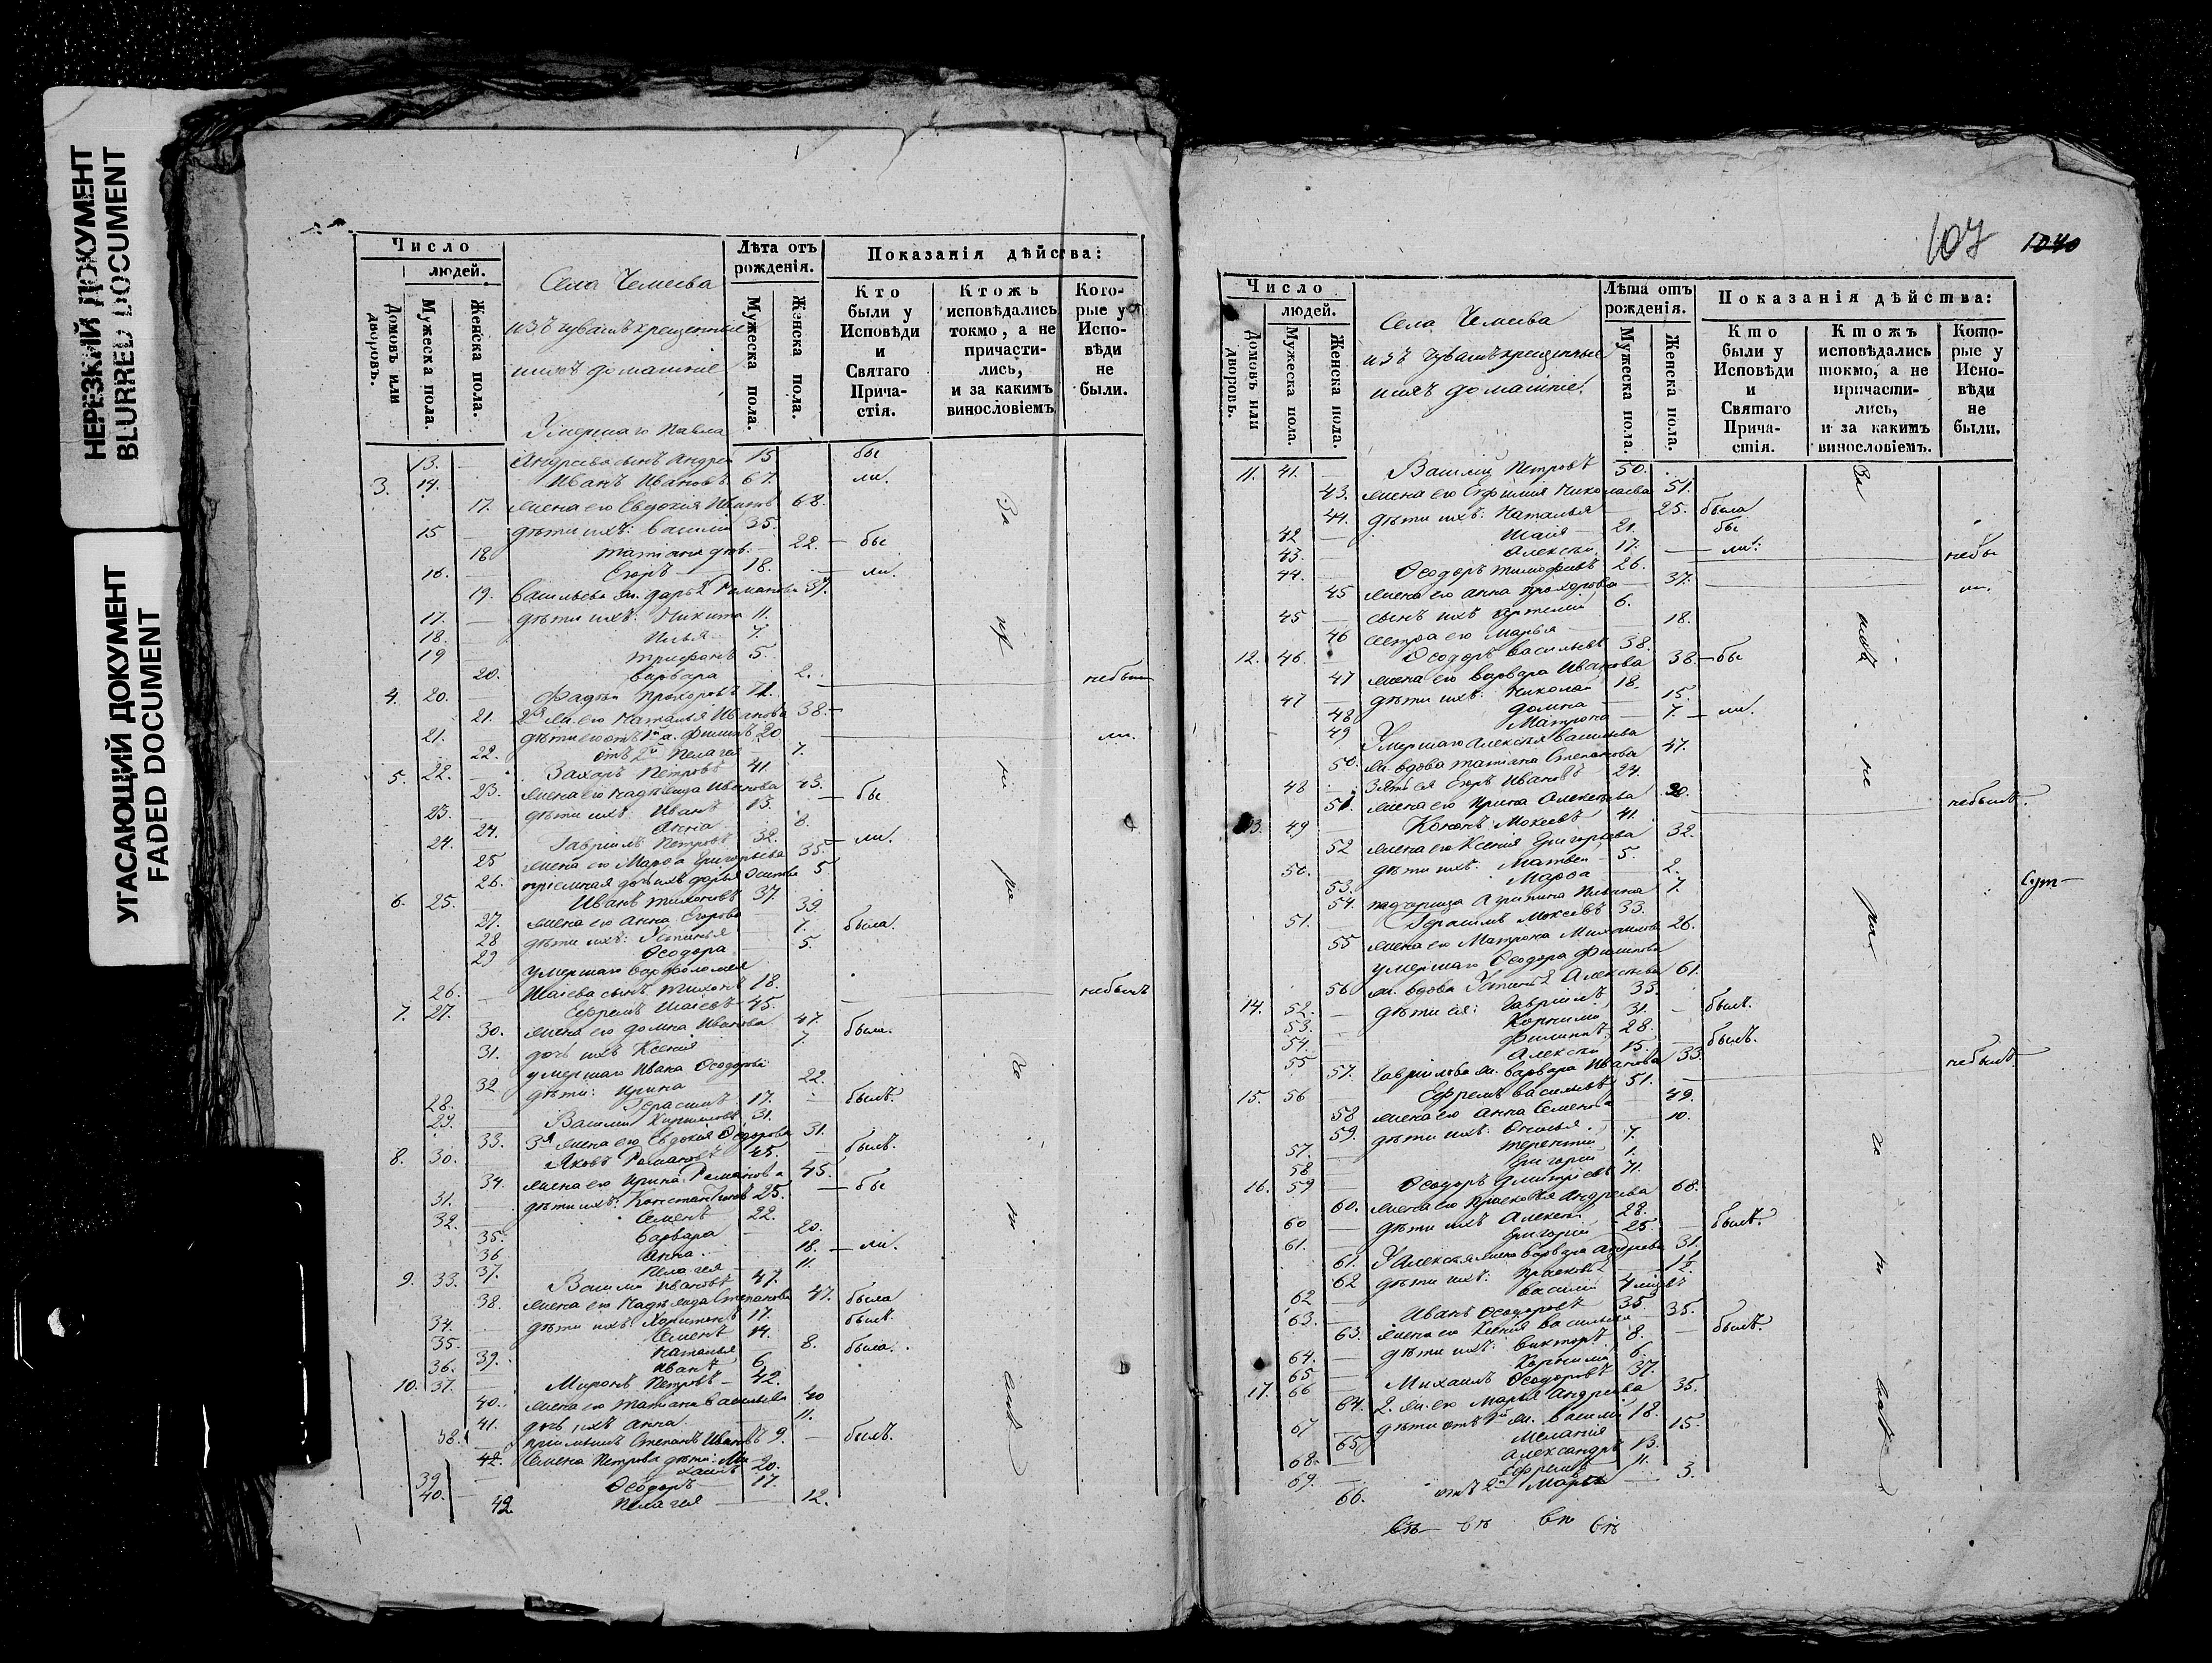 НЕРЕЗКИЙ ДОКУМЕНТ
BLURRED DOCUMENT
УГАСАЮЩИЙ ДОКУМЕНТ
FADED DOCUMENT
Число
людей.
Домовъ или дворовъ.
Мужеска пола.
Женска пола.
Села Чемеева
изъ чувашъ крещенные
ихъ домашніе
Лѣта отъ рожденія.
Мужеска пола.
Женска пола.
Показанія дѣйства:
Кто были у Исповѣди и Святаго Причастія.
Ктожъ исповѣдались токмо, а не причастились, и за какимъ винословіемъ
Которые у Исповѣди не были.
Умершаго Павла
13. — Андреева сынъ Андрей 15 бы
3. 14. Иванъ Ивановъ 67. ли.
17. жена его Евдокія 68.
15 — дѣти ихъ: Василій 35.
18. Татіана 22. — бы
16. — Егоръ — 18. — ли.
19. Васильева ж. Дарья Романова 37.
17. — дѣти ихъ: Никита 11.
18. Илья 7.
19 Трифонъ 5.
20. Варвара 2.
4. 20. — Фадѣй Прохоровъ 71. небыли
21. 2я ж. его Наталья Иванова 38.
21. дѣти его отъ 1й ж. Филипъ 20 ли.
22. отъ 2й Пелагея 7.
5. 22. — Захаръ Петровъ 41.
23. жена его Надежда Иванова 43. — бы
23. — дѣти ихъ: Иванъ 13.
24. Анна 8.
24. Гавріилъ Петровъ 32. — ли.
25 жена его Марѳа Григорьева 35.
26. пріемная дочь ихъ Дарья Осипова 5
6. 25. Иванъ Тихоновъ 37.
27. жена его Анна Егорова 39.
28 дѣти ихъ: Устинья 7. была.
29 Ѳеодора 5.
умершаго Варфоломея
26. — Исаіева сынъ Тихонъ 18.
7. 27. Ефремъ Исаіевъ 45. — небылъ
30. жена его Домна Иванова 47.
31. дочь ихъ Ксенія 7. была.
умершаго Ивана Ѳеодорова
32. дѣти: Ирина 22.
28. Герасимъ 17. — былъ.
29. Василій Кириловъ 31.
33. 3я жена его Евдокія Ѳедорова 31.
8. 30. Яковъ Романовъ 45. — былъ.
34. жена его Ирина Романова 45.
31. — дѣти ихъ: Константинъ 25. — бы
32. Семенъ 22.
35. Варвара 20.
36 Анна 18. — ли.
37. Пелагея 11.
9. 33. Василій Ивановъ 47.
38. жена его Надежда Степанова 47. была
34. дѣти ихъ: Харитонъ 17. былъ.
35. Семенъ 14.
39. Наталья 8. была.
36. Иванъ 6.
10. 37. — Миронъ Петровъ — 42.
40. жена его Татіана Васильева 40
41. дочь ихъ Анна 11.
38. пріемышъ Степанъ Ивановъ 9. — былъ.
42. Семена Петрова дѣти: Ми-
39. — хаилъ 20.
40. — Ѳеодоръ — 17.
42 Пелагея — 12.
107 1040
Число
людей.
Домовъ или дворовъ.
Мужеска пола.
Женска пола.
Села Чемеева
изъ Чувашъ крещенные
ихъ домашніе.
Лѣта отъ рожденія.
Мужеска пола.
Женска пола.
Показанія дѣйства:
Кто были у Исповѣди и Святаго Причастія.
Ктожъ исповѣдались токмо, а не причастились, и за какимъ винословіемъ.
Которые у Исповѣди не были.
11. 41. — Василій Петровъ 50.
43. жена его Евфимія Николаева 51.
44. дѣти ихъ: Наталья 25. была
42 — Исаія 21. бы
43. Алексѣй 17. — ли.
44. Ѳеодоръ Тимофеевъ 26. — небы
45 жена его Анна Прохорова 37. — ли.
45 — сынъ ихъ Артемій 6.
46 сестра его Марья 18.
12. 46. Ѳеодоръ Васильевъ 38.
47 жена его Варвара Иванова 38. — бы
47 — дѣти ихъ: Николай 18.
48 Домна — 15
49 Матрона — 7. — ли.
Умершаго Алексѣя Васильева
50. ж. вдова Татіана Степанова 47.
48 Зять ея Егоръ Ивановъ 24.
51. жена его Ирина Алексѣева 20.
13. 49 — Кононъ Мокеевъ 41. — небылъ.
52 жена его Ксенія Григорьева 32.
50. дѣти ихъ: Матвей 5.
53. Марѳа — 2.
54. падчерица Агрипина Ильина 7. Сут-
51. — Герасимъ Мокеевъ 33.
55 жена его Матрона Михайлова 26.
умершаго Ѳеодора Филипова
56 ж. вдова Устинья Алексѣева 61.
14. 52. — дѣти ея: Гавріилъ 33.
53. Корнилій 31. — былъ.
54. Филипъ 28.
55 Алексѣй 15. — былъ.
57. Гавріилова ж. Варвара Иванова 33.
15. 56 Ефремъ Васильевъ 51. — небылъ
58 жена его Анна Семенова 49.
59. дѣти ихъ: 10.
57. Терентій 7.
58 Григорій 1.
16. 59 — Ѳеодоръ Дмитріевъ 71.
60. жена его Прасковья Андреева 68.
60 — дѣти ихъ Алексѣй 28.
61. — Григорій 25. — былъ.
61. У Алексѣя жена Варвара Андреева 31.
62 дѣти ихъ: Прасковья
62 — Василій 4 мѣсяцъ
63. — Иванъ Ѳеодоровъ 35.
63. жена его Ксенія Васильева 35.
64. — дѣти ихъ: Викторъ 8. — былъ.
65 — Корнилій 6.
17. 66 — Михаилъ Ѳеодоровъ 37.
64. 2. ж. его Марья Андреева 35.
67 — дѣти отъ 1й ж. Василій 18.
65 Меланія — 15.
68. — Александръ 13.
69. — Ефремъ 11.
66. отъ 2й Марья — 3.